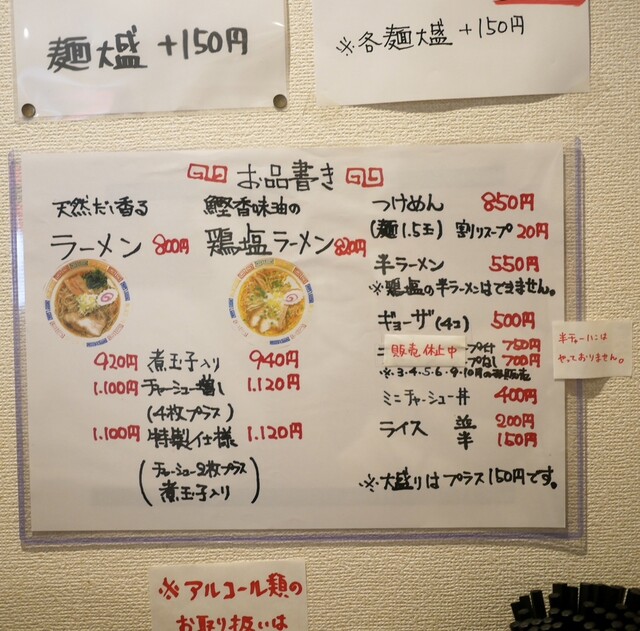 麺大盛 +150円
※各麺大盛 +150円
お品書き
天然だし香る
ラーメン 800円
鰹香味油の
鶏塩ラーメン 820円
920円 煮玉子入り 940円
1.100円 チャーシュー増し 1.120円
(4枚プラス)
1.100円 特製仕様 1.120円
(チャーシュー2枚プラス
煮玉子入り)
つけめん 850円
(麺1.5玉) 割りスープ 20円
半ラーメン 550円
※鶏塩の半ラーメンはできません。
ギョーザ(4コ) 500円
販売休止中 プ付 750円
プなし 700円
※.3.4.5.6.9.10月の
ミニチャーシュー丼 400円
ライス 並 200円
半 150円
※大盛りはプラス150円です。
半チャーハンは
やっておりません。
※アルコール類の
お取り扱いは